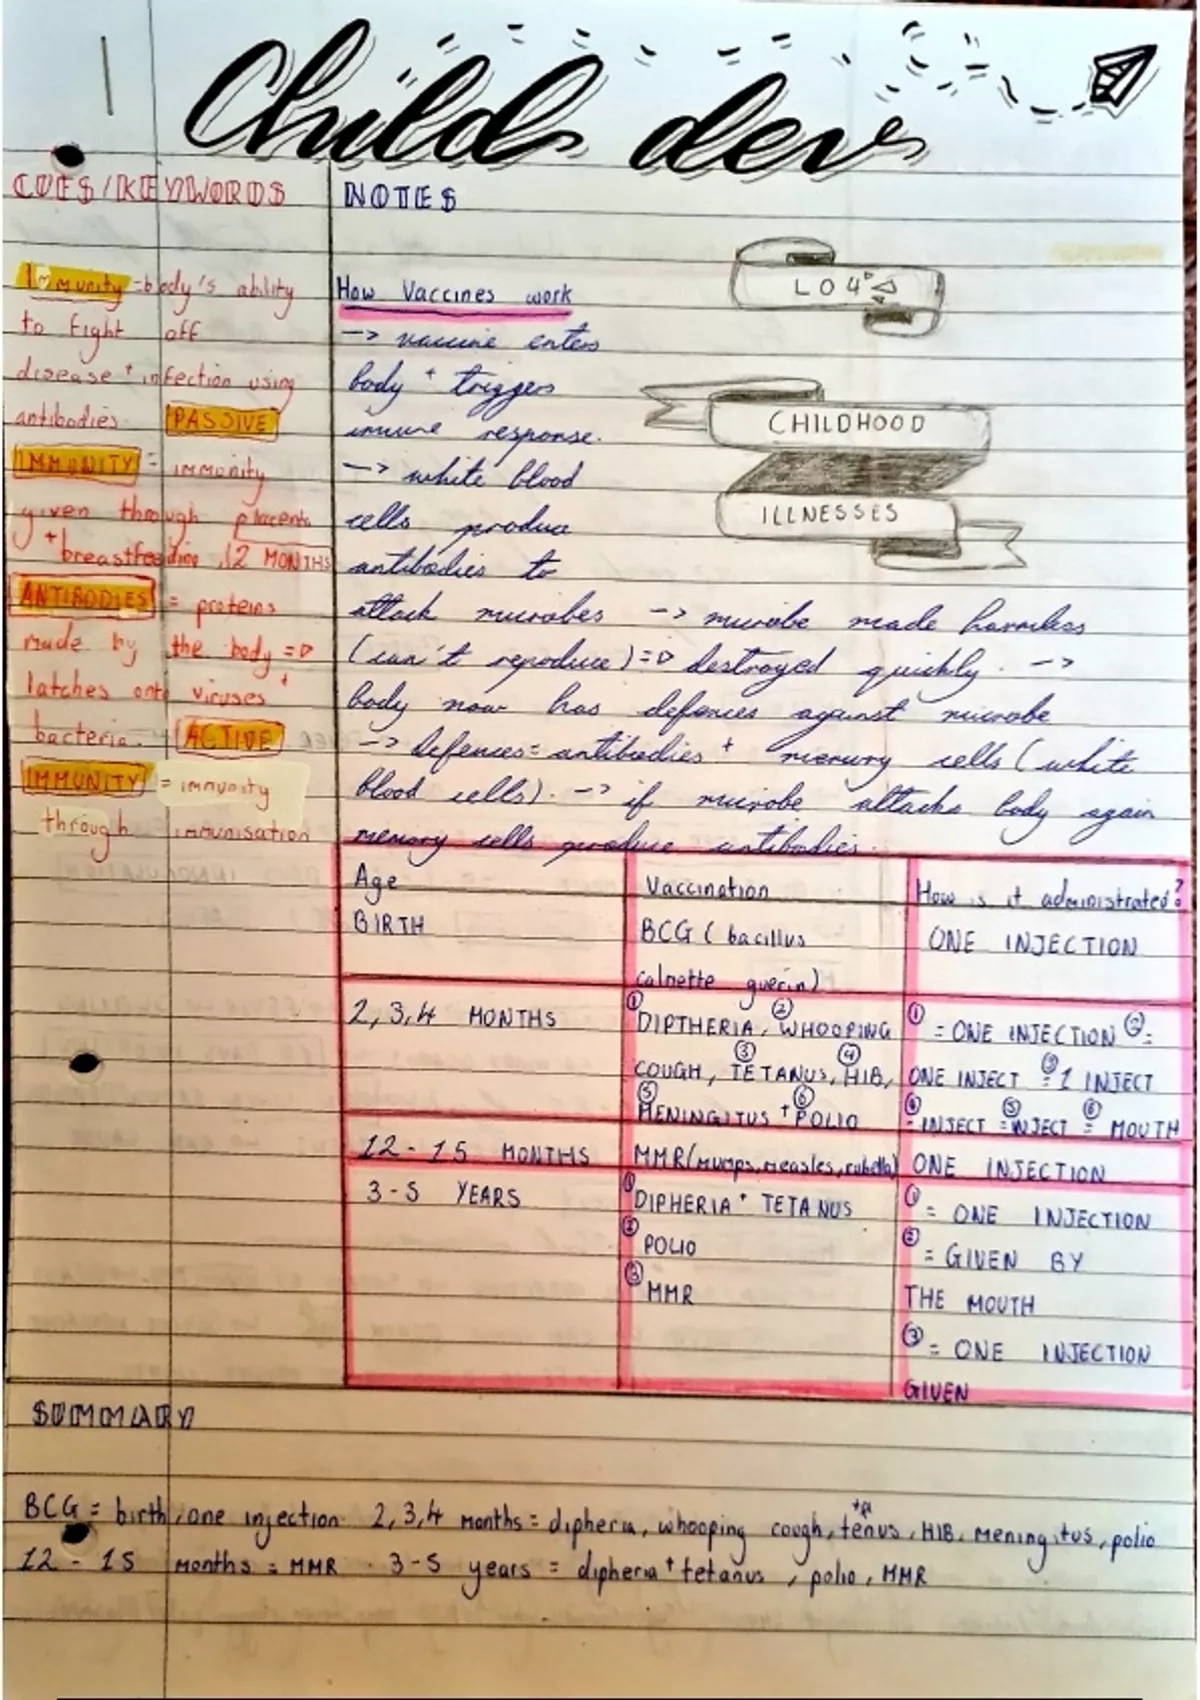 Child dev
CUES/KEYWORDS
Immunity = body's ability
to fight off
disease + infection using
antibodies. PASSIVE
IMMUNITY = immunity
given through placenta
+ breastfeeding, 12 MONTHS
ANTIBODIES = proteins
made by the body =>
latches onto viruses +
bacteria. ACTIVE
IMMUNITY = immunity
through immunisation
NOTES
LO4
CHILDHOOD
ILLNESSES
How Vaccines work
-> vaccine enters
body + triggers
imune response.
-> white blood
cells produce
antibodies to
attack microbes -> microbe made harmless
(can't reproduce) => destroyed quickly. ->
body now has defences against microbe
-> defences = antibodies + memory cells (white
blood cells). -> if microbe attacks body again
memory cells produce antibodies.
Age Vaccination How is it administrated?
BIRTH BCG (bacillus ONE INJECTION
calnette guerin)
2,3,4 MONTHS ① DIPTHERIA, ② WHOOPING ① = ONE INJECTION ② =
COUGH, ③ TETANUS, ④ HIB, ONE INJECT ③ = 1 INJECT
⑤ MENINGITUS + ⑥ POLIO ④ = INJECT ⑤ = INJECT ⑥ = MOUTH
12 - 15 MONTHS MMR (mumps, measles, rubella) ONE INJECTION
3-5 YEARS ① DIPHERIA + TETANUS ① = ONE INJECTION
② POLIO ② = GIVEN BY
③ MMR THE MOUTH
③ = ONE INJECTION
GIVEN
SUMMARY
BCG = birth, one injection. 2,3,4 months = dipheria, whooping cough, tenus +a, HIB, meningitus, polio
12 - 15 months = MMR . 3-5 years = dipheria + tetanus, polio, MMR